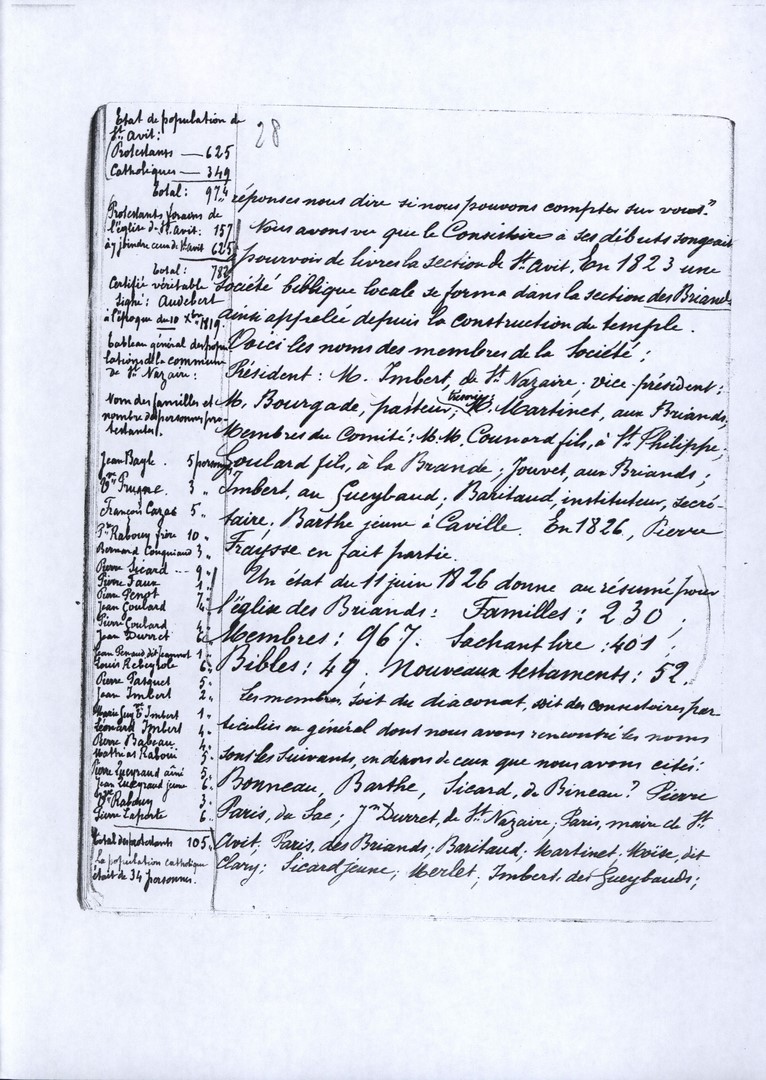 28
Etat de population de
St Avit:
Protestants — 625
Catholiques — 349
Total: 974
Protestants forains de
l'église de St Avit: 157
à y joindre ceux de St Avit 625
Total: 782
Certifié véritable
Signé: Audebert
à l'époque du 10 Xbre 1819.
Tableau général des popu
lations de la commune
de St Nazaire:
Nom des familles et
nombre de personnes pro
testantes.
Jean Bayle. 5 personnes
Vve Prugne. 3 "
François Cazas 5 "
Pre Rabouy frère 10 "
Bernard Couguiaud 3 "
Pierre Sicard --- 9 "
Pierre Faux 1 "
Pierre Penot 7 "
Jean Goulard 4 "
Pierre Goulard 4 "
Jean Durret 6
Jean Renaud dit Jeannot 1 "
Louis Rebeyrole 6 "
Pierre Pasquet 5 "
Jean Imbert 2 "
Marie Guy Imbert 1 "
Léonard Imbert 4 "
Pierre Babeau 4 "
Mathias Rabouin 5 "
Pierre Queyraud ainé 5 "
Jean Queyraud jeune 6 "
Vve Rabouy 3 "
Pierre Laporte 6 "
Total des protestants 105
La population catholique
était de 34 personnes.
réponses nous dire si nous pouvons compter sur vous."
Nous avons vu que le Consistoire à ses débuts songeait
pourvoir de livres la section de St Avit. En 1823 une
Société biblique locale se forma dans la section des Briands
ainsi appelée depuis la construction du temple.
Voici les noms des membres de la Société;
Président: M. Imbert, de St Nazaire; vice-président:
M. Bourgade, pasteur; trésorier: M. Martinet, aux Briands;
Membres du Comité: M.M. Counord fils, à St Philippe;
Goulard fils, à la Brande; Jouvet, aux Briands;
Imbert, au Gueybaud; Baritaud, instituteur, secré-
taire; Barthe jeune à Caville. En 1826, Pierre
Fraysse en fait partie.
Un état du 11 juin 1826 donne au résumé pour
l'église des Briands: Familles: 230;
Membres: 967. Sachant lire: 401;
Bibles: 49. Nouveaux testaments: 52.
Les membres, soit du diaconat, soit des consistoires par
ticuliers en général dont nous avons rencontré les noms
sont les suivants, en dehors de ceux que nous avons cités:
Bonneau, Barthe, Sicard, de Bineau? Pierre
Paris, du Sac; Jn Durret, de St Nazaire; Paris, maire de St
Avit; Paris, des Briands; Baritaud; Martinet, Moïse, dit
Clary; Sicard jeune; Merlet; Imbert, des Gueybauds;